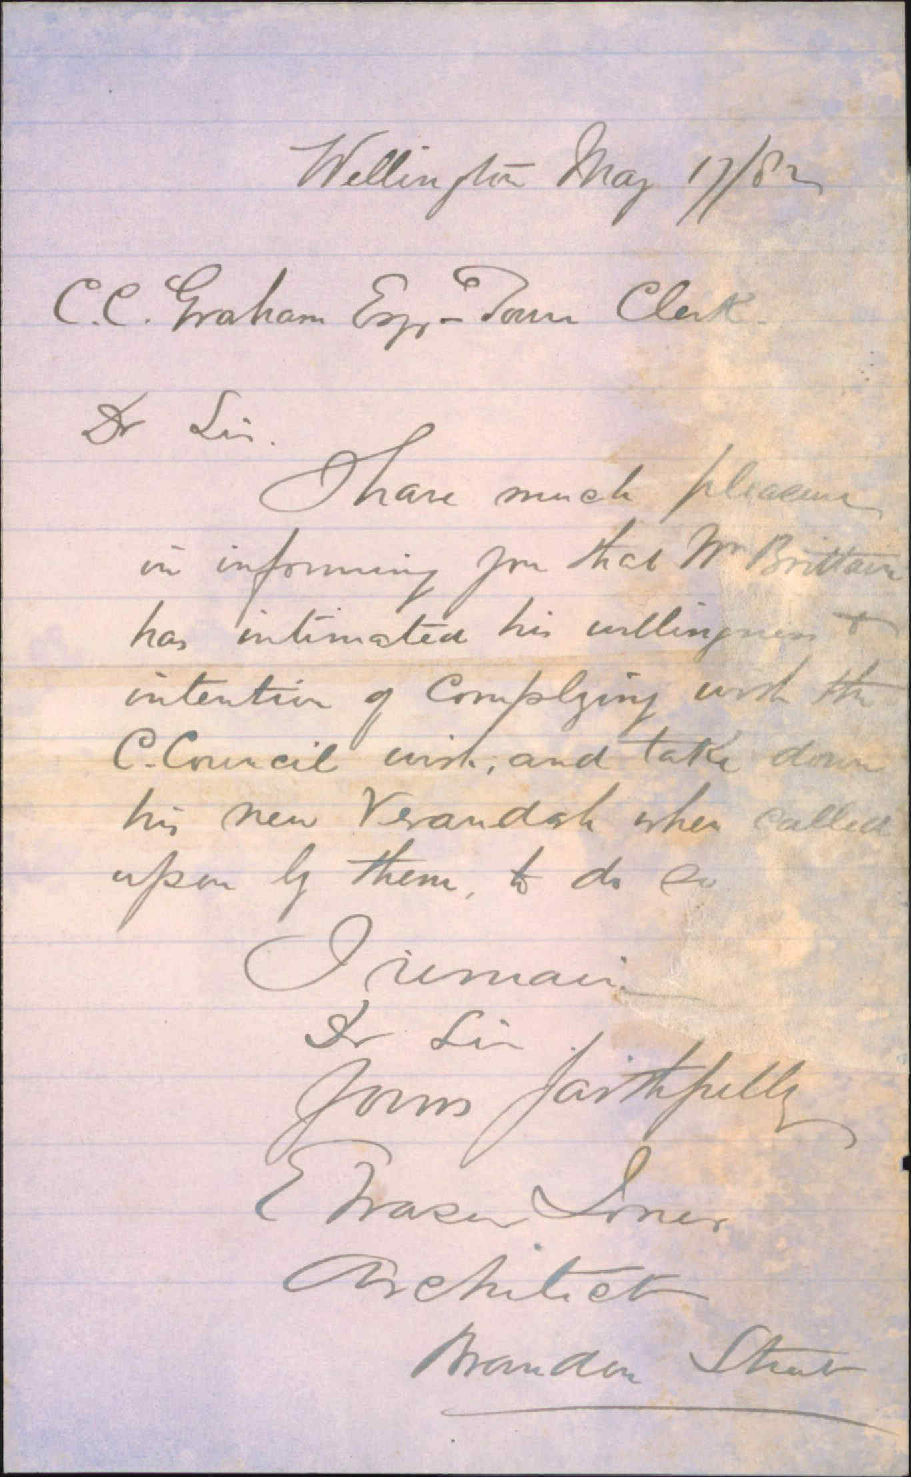 Wellington May 17/82
C.C. Graham Esqr - Town Clerk.
Dr Sir.
I have much pleasure
in informing you that Mr Brittain
has intimated his willingness &
intention of complying with the
C. Council wish, and take down
his new Verandah when called
upon by them, to do so
I remain
Dr Sir
Yours faithfully
E Fraser Jones
Architect
Brandon Street